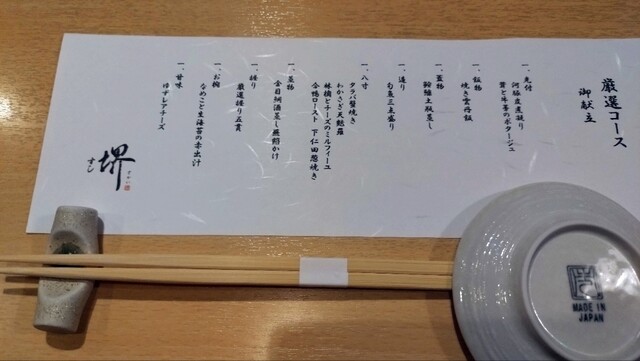 厳選コース
御献立
一、先付
河豚皮煮凝り
茸と牛蒡のポタージュ
一、飯物
焼き雲丹飯
一、蓋物
鮟鱇土瓶蒸し
一、造り
旬魚三点盛り
一、八寸
タラバ蟹焼き
わかさぎ天麩羅
林檎とチーズのミルフィーユ
合鴨ロースト 下仁田葱焼き
一、蒸物
金目鯛酒蒸し蕪餡かけ
一、握り
厳選握り五貫
一、お椀
なめこと生海苔の赤出汁
一、甘味
ゆずレアチーズ
すし
堺
MADE IN
JAPAN